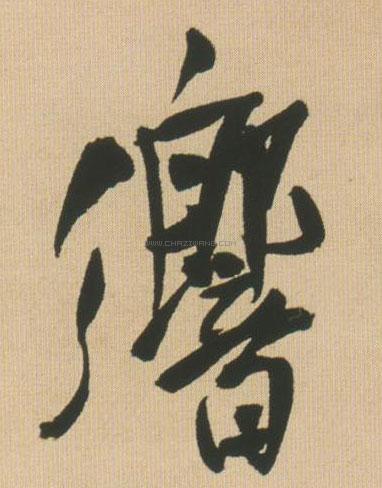 響
WWW.CHAZIWANG.COM